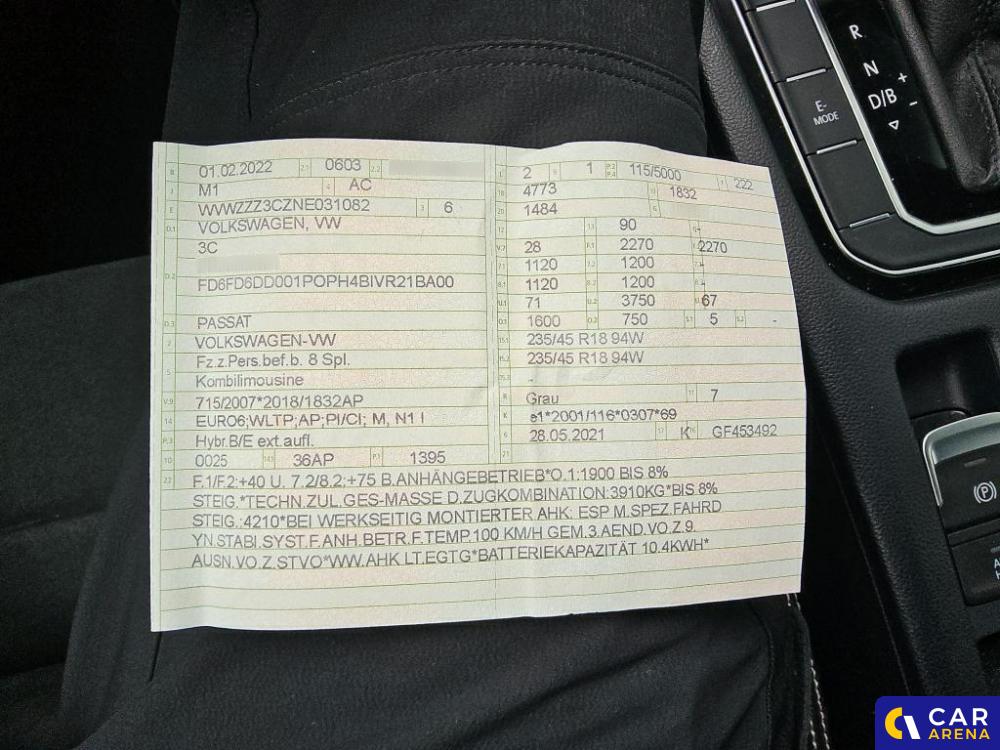 R
N
D/B + -
E-
MODE
B 01.02.2022 2.1 0603 2.2
J M1 4 AC
E WVWZZZ3CZNE031082 3 6
D.1 VOLKSWAGEN, VW
3C
D.2
FD6FD6DD001POPH4BIVR21BA00
D.3 PASSAT
2 VOLKSWAGEN-VW
5 Fz.z.Pers.bef.b. 8 Spl.
Kombilimousine
V.9 715/2007*2018/1832AP
14 EURO6;WLTP;AP;PI/CI; M, N1 I
P.3 Hybr.B/E ext.aufl.
10 0025 14.1 36AP P.1 1395
L 2 9 1 P.2 P.4 115/5000 T 222
18 4773 19 1832
20 1484 G
12 13 90 Q -
V.7 28 F.1 2270 F.2 2270
7.1 1120 7.2 1200 7.3 -
8.1 1120 8.2 1200 8.3 -
U.1 71 U.2 3750 U.3 67
O.1 1600 O.2 750 S.1 5 S.2 -
15.1 235/45 R18 94W
15.2 235/45 R18 94W
15.3 -
R Grau 11 7
K e1*2001/116*0307*69
6 28.05.2021 17 K 16 GF453492
21
22 F.1/F.2:+40 U. 7.2/8.2:+75 B.ANHÄNGEBETRIEB*O.1:1900 BIS 8%
STEIG.*TECHN.ZUL.GES-MASSE D.ZUGKOMBINATION:3910KG*BIS 8%
STEIG.:4210*BEI WERKSEITIG MONTIERTER AHK: ESP M.SPEZ.FAHRD
YN.STABI.SYST.F.ANH.BETR.F.TEMP.100 KM/H GEM.3.AEND.VO.Z.9.
AUSN.VO.Z.STVO*WW.AHK LT.EGTG*BATTERIEKAPAZITÄT 10.4KWH*
(P)
CAR
ARENA